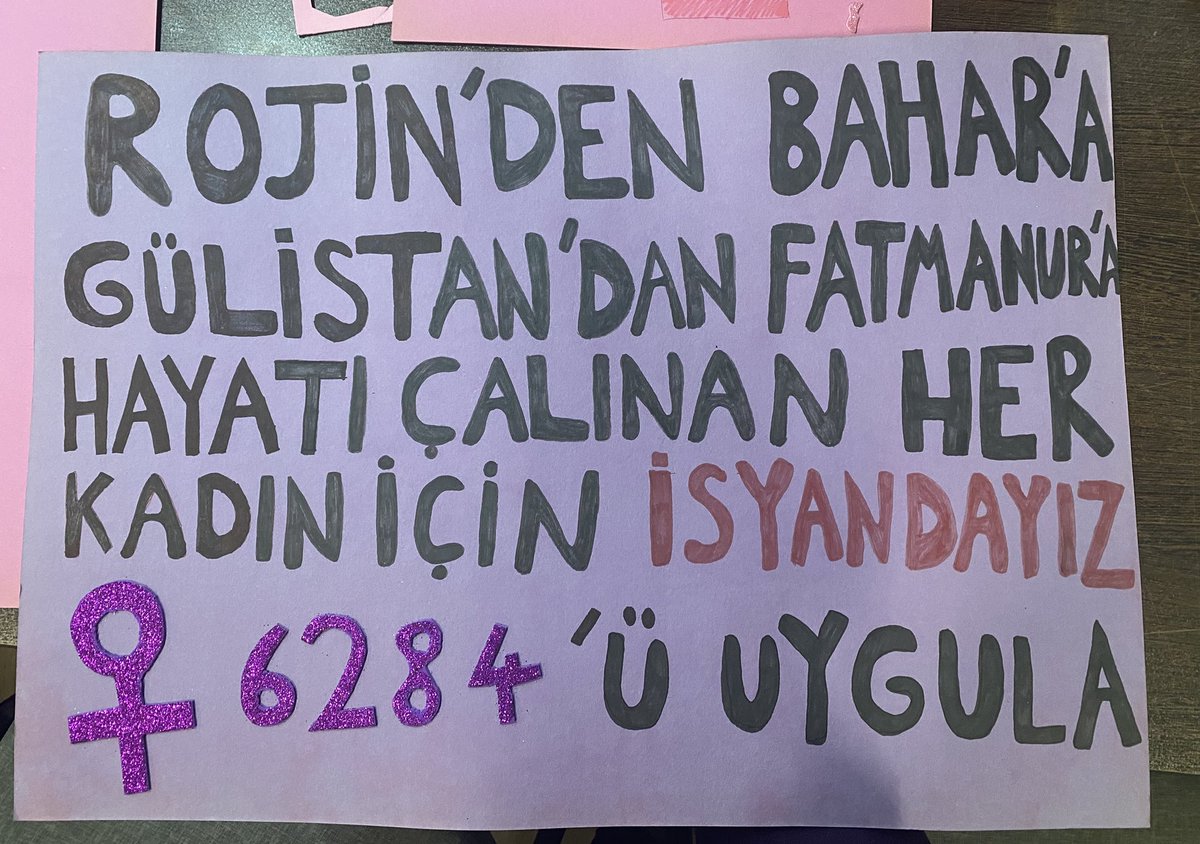 ROJİN'DEN BAHAR'A
GÜLİSTAN'DAN FATMANUR'A
HAYATI ÇALINAN HER
KADIN İÇİN İSYANDAYIZ
♀ 6284 'Ü UYGULA